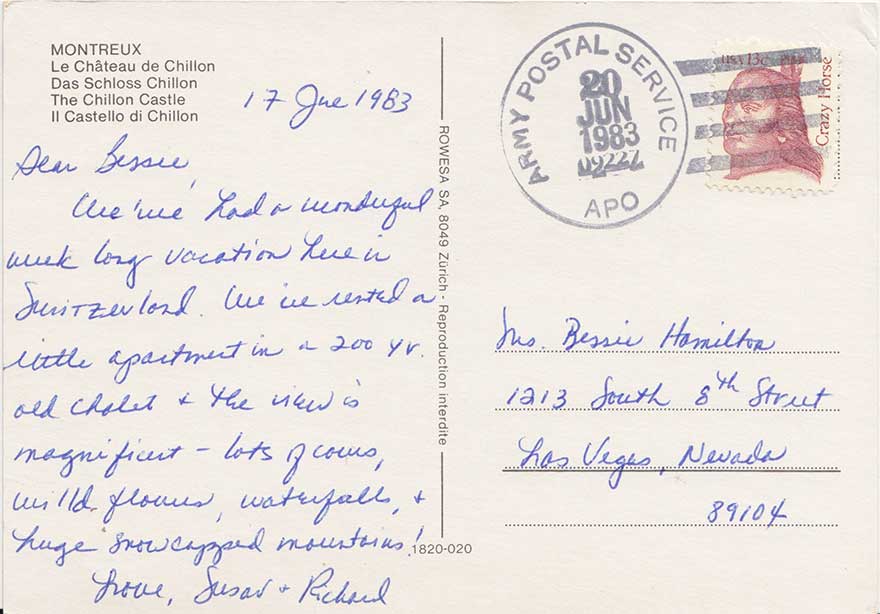 MONTREUX
Le Château de Chillon
Das Schloss Chillon
The Chillon Castle
Il Castello di Chillon
17 Jne 1983
Dear Bessie,
We've had a wonderful
week long vacation here in
Switzerland. We've rented a
little apartment in a 200 yr.
old chalet & the view is
magnificent – lots of cows,
wild flowers, waterfalls, &
huge snowcapped mountains!
Love, Susan & Richard
ROWESA SA, 8049 Zürich - Reproduction interdite
1820-020
ARMY POSTAL SERVICE
20
JUN
1983
APO
USA 13c
Crazy Horse
Ms. Bessie Hamilton
1213 South 8th Street
Las Vegas, Nevada
89104